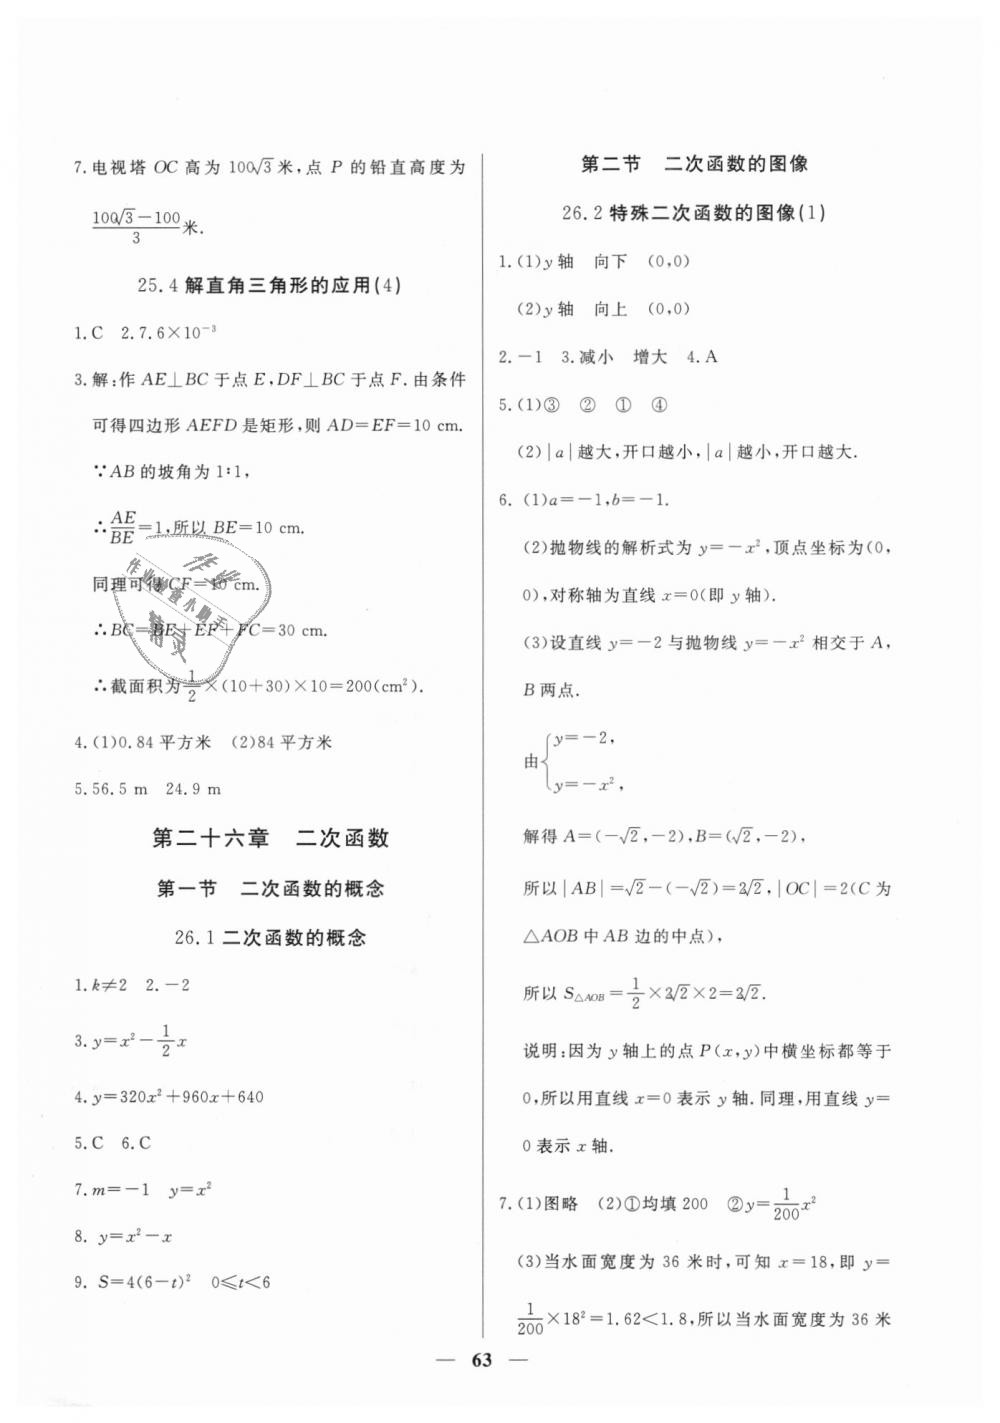 7.电视塔 OC 高为 100√3米,点 P 的铅直高度为
(100√3－100)/3 米.
25.4 解直角三角形的应用(4)
1.C　2.7.6×10⁻³
3.解:作 AE⊥BC 于点 E,DF⊥BC 于点 F.由条件
可得四边形 AEFD 是矩形,则 AD=EF=10 cm.
∵AB 的坡角为 1∶1,
∴AE/BE=1,所以 BE=10 cm.
同理可得 CF=10 cm.
∴BC=BE+EF+FC=30 cm.
∴截面积为1/2×(10+30)×10=200(cm²).
4.(1)0.84 平方米　(2)84 平方米
5.56.5 m　24.9 m
第二十六章　二次函数
第一节　二次函数的概念
26.1 二次函数的概念
1.k≠2　2.－2
3.y=x²－1/2x
4.y=320x²+960x+640
5.C　6.C
7.m=－1　y=x²
8. y=x²－x
9. S=4(6－t)²　0≤t<6
作业
作业检查小助手
精灵
第二节　二次函数的图像
26.2 特殊二次函数的图像(1)
1.(1)y 轴　向下　(0,0)
(2)y 轴　向上　(0,0)
2.－1　3.减小　增大　4.A
5.(1)③　②　①　④
(2)|a|越大,开口越小,|a|越小,开口越大.
6.(1)a=－1,b=－1.
(2)抛物线的解析式为 y=－x²,顶点坐标为(0,
0),对称轴为直线 x=0(即 y 轴).
(3)设直线 y=－2 与抛物线 y=－x² 相交于 A,
B 两点.
由{y=－2,
y=－x²,
解得 A=(－√2,－2),B=(√2,－2),
所以|AB|=√2－(－√2)=2√2,|OC|=2(C 为
△AOB 中 AB 边的中点),
所以 S△AOB=1/2×2√2×2=2√2.
说明:因为 y 轴上的点 P(x,y)中横坐标都等于
0,所以用直线 x=0 表示 y 轴.同理,用直线 y=
0 表示 x 轴.
7.(1)图略　(2)①均填 200　②y=1/200x²
(3)当水面宽度为 36 米时,可知 x=18,即 y=
1/200×18²=1.62<1.8,所以当水面宽度为 36 米
— 63 —